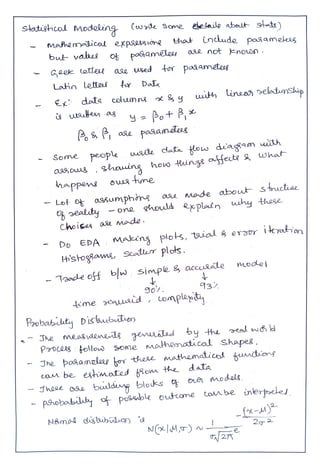 Statistical Modeling (write some details about stats)
- Mathematical expressions that include parameters
but values of parameters are not known.
- Greek letters are used for parameters
Latin letters for Data
- Ex: data columns x & y with linear relationship
is written as y = β₀ + β₁x
β₀ & β₁ are parameters
- Some people write data flow diagram with
arrows, showing how things affects & what
happens over time
- Lot of assumptions are made about structure
of reality - one should explain why these
choices are made.
- Do EDA making plots, trial & error iteration
Histograms, scatter plots.
- Trade off b/w simple & accurate model
↓ ↓
90% 93%
time required, complexity
Probability Distribution
- The measurements generated by the real world
process follow some mathematical shapes.
- The parameters for these mathematical functions
can be estimated from the data
- These are building blocks of our models.
- probability of possible outcome can be
Normal distribution is
N(x|M,σ) ~ 1/(σ√2π) e^(-(x-M)²/2σ²)